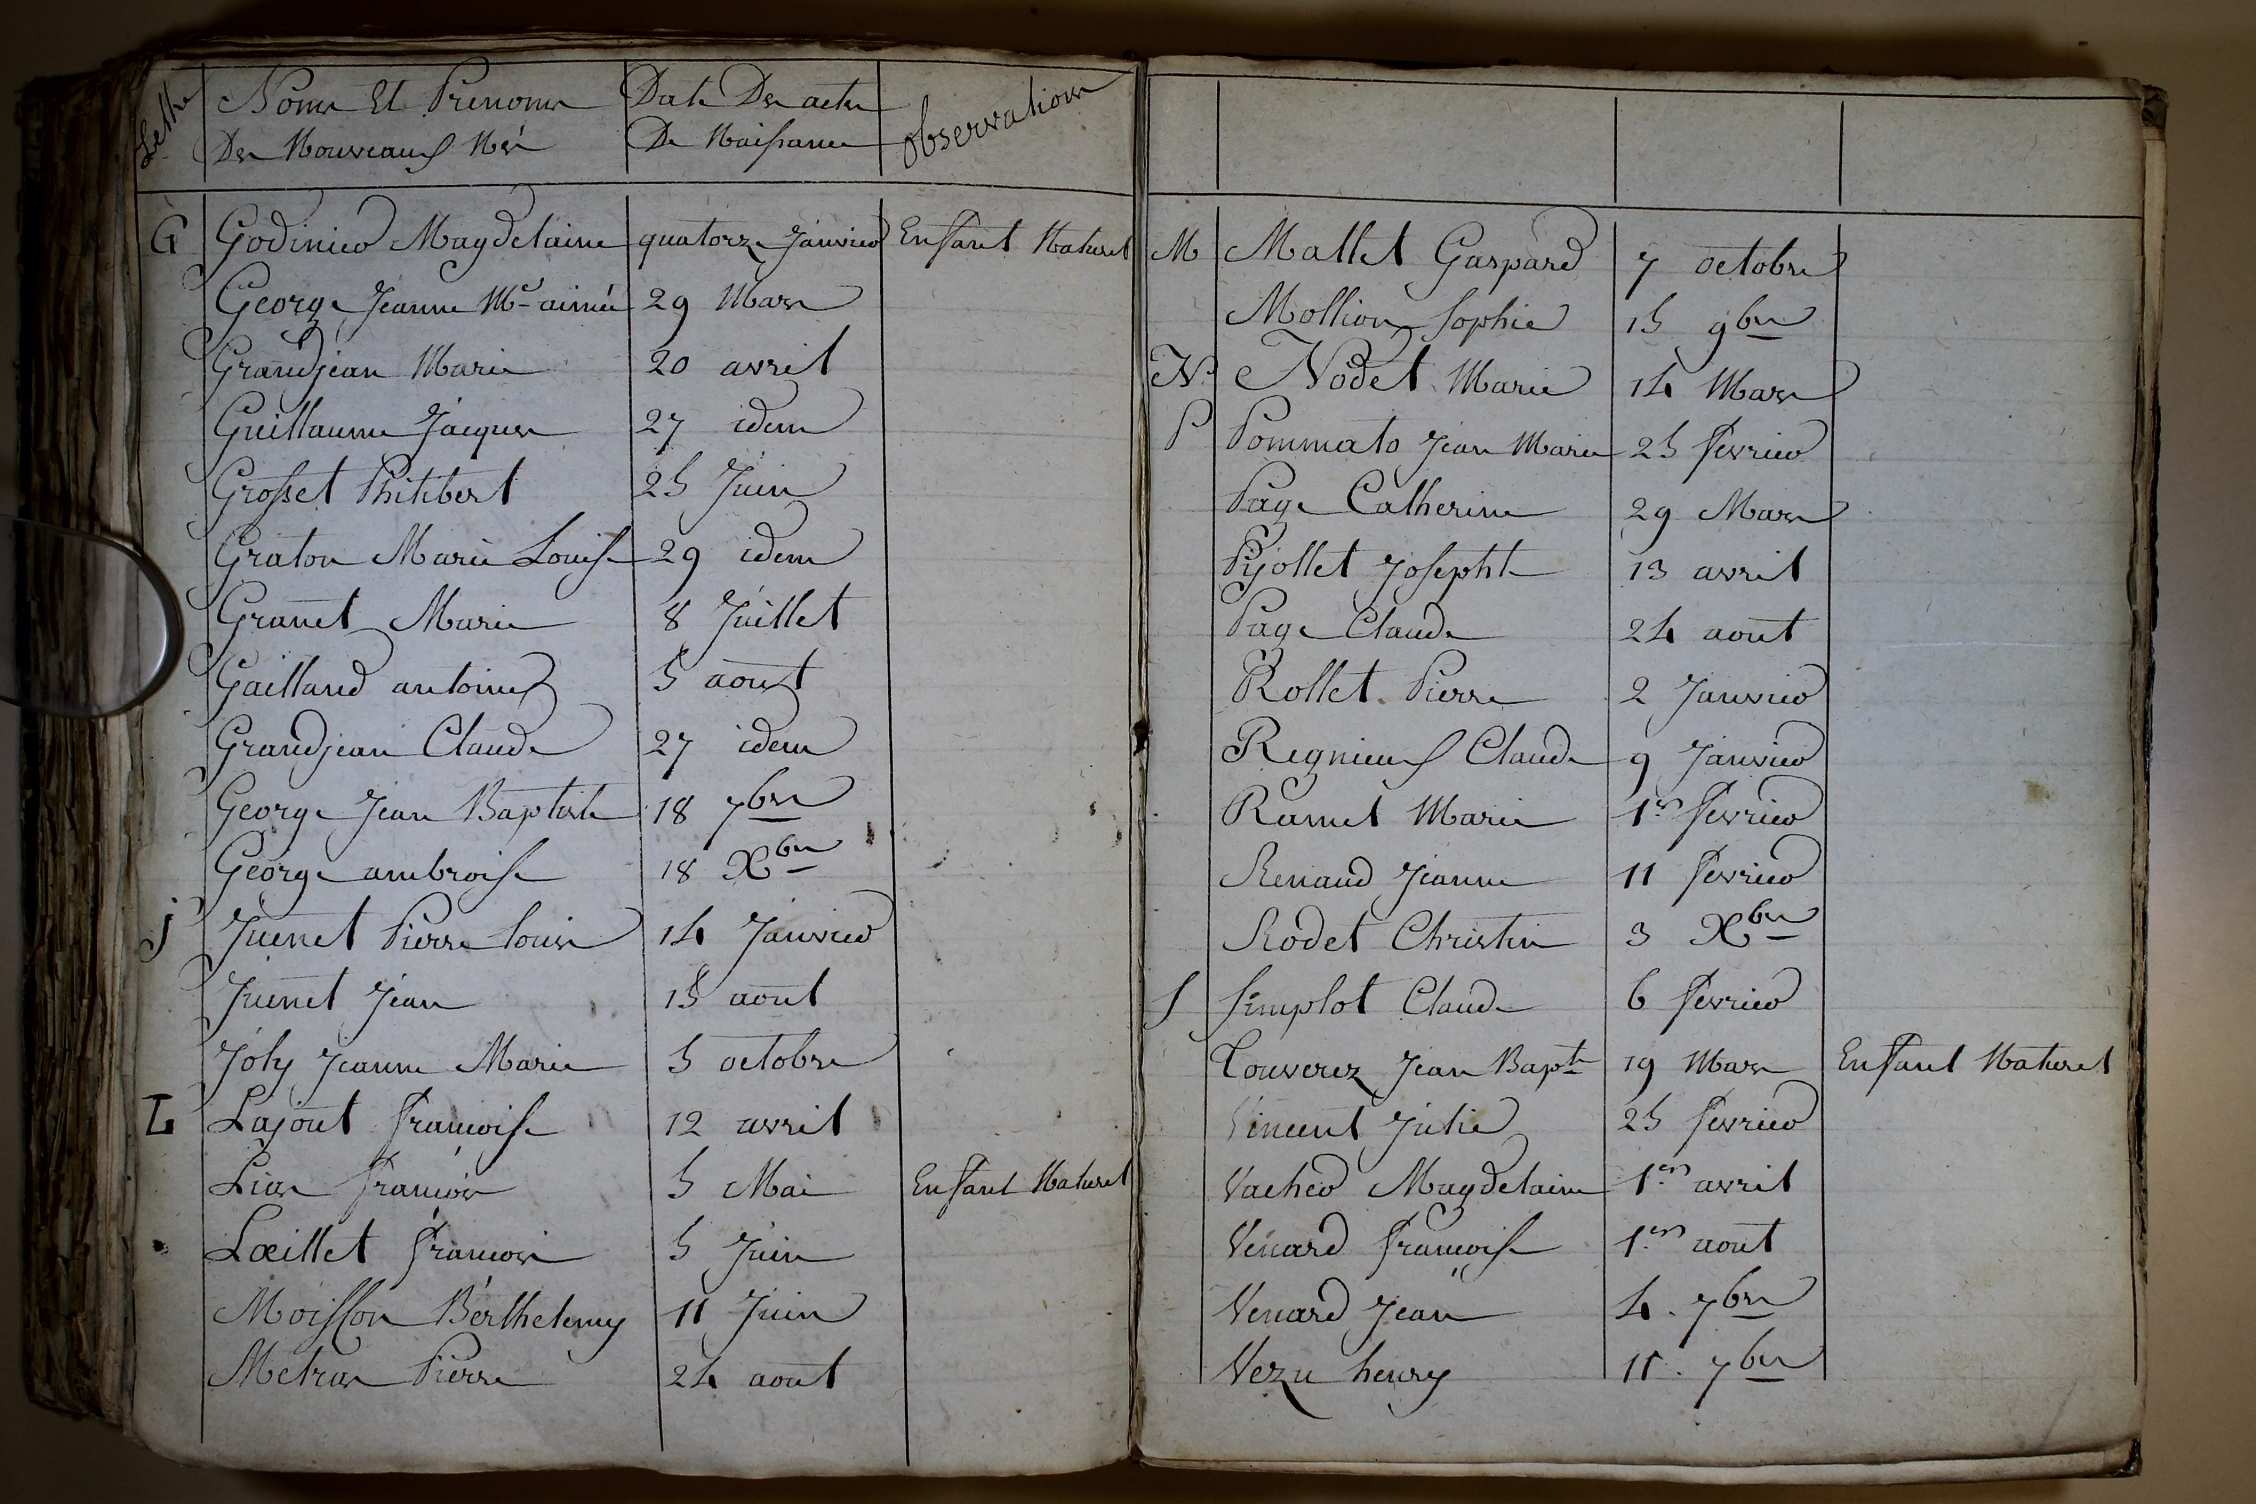 Lettre Noms Et Prenoms Date Des actes observations
Des Nouveaux Nés De Naissance
G Godinier Magdelaine quatorze Janvier Enfant Naturel
George Jeanne Me aimée 29 Mars
Grandjean Marie 20 avril
Guillaume Jacques 27 idem
Grosset Philibert 25 Juin
Graton Marie Louise 29 idem
Granet Marie 8 Juillet
Gailland antoine 5 aout
Grandjean Claude 27 idem
George Jean Baptiste 18 7bre
George ambroise 18 Xbre
J Juenet Pierre Louis 14 Janvier
Juenet Jean 15 aout
Joly Jeanne Marie 5 octobre
L Lajout françoise 12 avril
Lias françois 5 Mai Enfant Naturel
Lœillet françois 5 Juin
Moisson Berthelemy 11 Juin
Metras Pierre 24 aout
M Mallet Gaspard 7 octobre
Mollion Sophie 15 9bre
N Nodet Marie 14 Mars
P Pommato Jean Marie 25 fevrier
Page Catherine 29 Mars
Pijollet Josephte 13 avril
Page Claude 24 aout
Rollet Pierre 2 Janvier
Regnieux Claude 9 Janvier
Ramel Marie 1er fevrier
Renaud Jeanne 11 fevrier
Rodet Christin 3 Xbre
S Simplot Claude 6 fevrier
Touverez Jean Bapte 19 Mars Enfant Naturel
Vincent Julie 25 fevrier
Vacher Magdelaine 1er avril
Venard françoise 1er aout
Venard Jean 4. 7bre
Vezu henry 11. 7bre